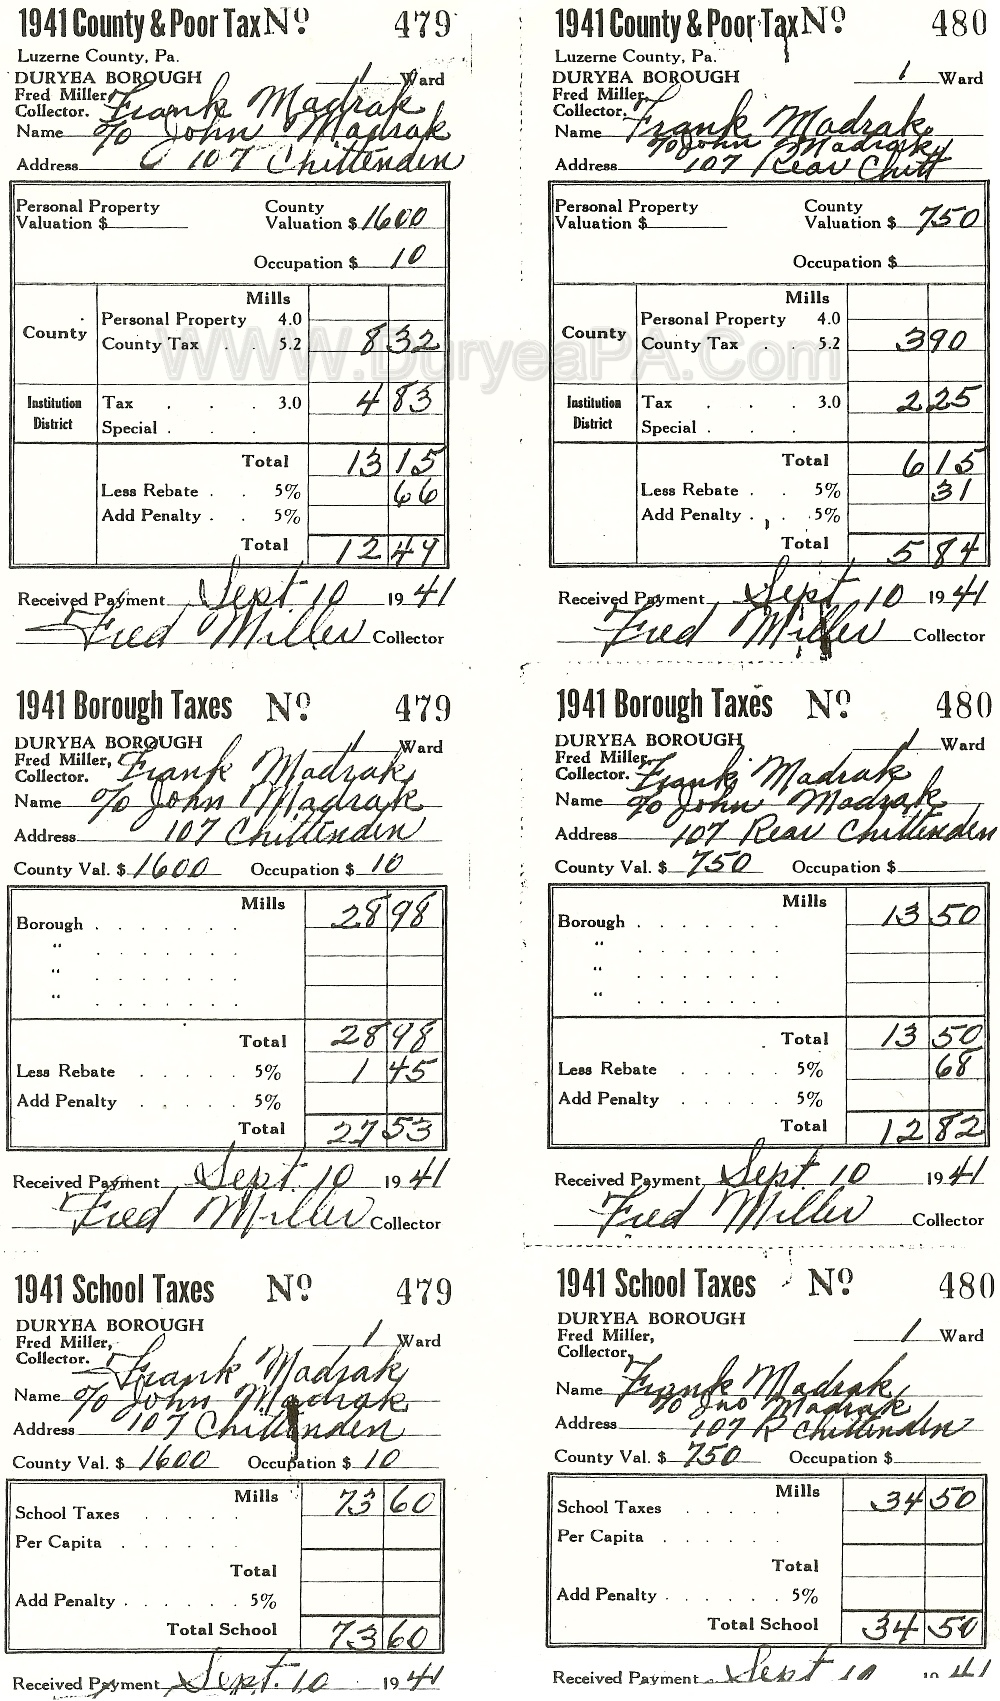 1941 County & Poor Tax Nº 479
Luzerne County, Pa.
DURYEA BOROUGH 1 Ward
Fred Miller,
Collector. Frank Madrak
Name % John Madrak
Address 107 Chittenden
Personal Property County
Valuation $ Valuation $ 1600
Occupation $ 10
Mills
Personal Property 4.0
County County Tax . . 5.2 8 32
Institution Tax . . . 3.0 4 83
District Special . . .
Total 13 15
Less Rebate . . 5% 66
Add Penalty . . 5%
Total 12 49
Received Payment Sept. 10 1941
Fred Miller Collector
1941 County & Poor Tax Nº 480
Luzerne County, Pa.
DURYEA BOROUGH 1 Ward
Fred Miller,
Collector. Frank Madrak
Name % John Madrak
Address 107 Rear Chitt
Personal Property County
Valuation $ Valuation $ 750
Occupation $
Mills
Personal Property 4.0
County County Tax . . 5.2 3 90
Institution Tax . . . 3.0 2 25
District Special . . .
Total 6 15
Less Rebate . . 5% 31
Add Penalty . . 5%
Total 5 84
Received Payment Sept 10 1941
Fred Miller Collector
WWW.DuryeaPA.Com
1941 Borough Taxes Nº 479
DURYEA BOROUGH 1 Ward
Fred Miller,
Collector. Frank Madrak
Name % John Madrak
Address 107 Chittenden
County Val. $ 1600 Occupation $ 10
Mills
Borough . . . . . . . 28 98
“ . . . . . . .
“ . . . . . . .
“ . . . . . . .
Total 28 98
Less Rebate . . . . . 5% 1 45
Add Penalty . . . . . 5%
Total 27 53
Received Payment Sept. 10 1941
Fred Miller Collector
1941 Borough Taxes Nº 480
DURYEA BOROUGH 1 Ward
Fred Miller,
Collector. Frank Madrak
Name % John Madrak
Address 107 Rear Chittenden
County Val. $ 750 Occupation $
Mills
Borough . . . . . . . 13 50
“ . . . . . . .
“ . . . . . . .
“ . . . . . . .
Total 13 50
Less Rebate . . . . . 5% 68
Add Penalty . . . . . 5%
Total 12 82
Received Payment Sept 10 1941
Fred Miller Collector
1941 School Taxes Nº 479
DURYEA BOROUGH 1 Ward
Fred Miller,
Collector. Frank Madrak
Name % John Madrak
Address 107 Chittenden
County Val. $ 1600 Occupation $ 10
Mills
School Taxes . . . . . 73 60
Per Capita . . . . . .
Total
Add Penalty . . . . . . 5%
Total School 73 60
Received Payment Sept. 10 1941
1941 School Taxes Nº 480
DURYEA BOROUGH 1 Ward
Fred Miller,
Collector.
Name Frank Madrak
% Jno Madrak
Address 107 R Chittenden
County Val. $ 750 Occupation $
Mills
School Taxes . . . . . 34 50
Per Capita . . . . . .
Total
Add Penalty . . . . . . 5%
Total School 34 50
Received Payment Sept 10 1941